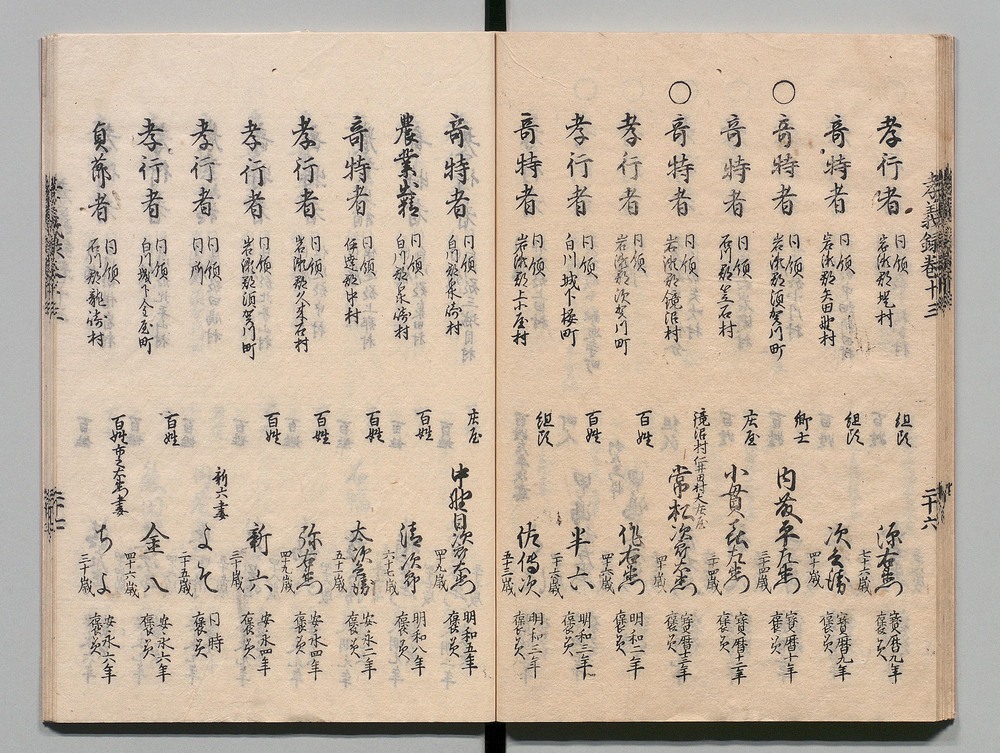 孝義録巻十三
二十六
孝行者 同領 岩瀬郡堤村 組頭 源右衛門 七十三歳 寶暦九年 褒美
奇特者 同領 岩瀬郡矢田野村 組頭 四十歳 寶暦九年 褒美
○奇特者 同領 岩瀬郡須賀川町 郷士 内藤平左衛門 三十四歳 寶暦十一年 褒美
奇特者 同領 石川郡笠石村 庄屋 小貫 三十四歳 寶暦十二年 褒美
○奇特者 同領 岩瀬郡鏡沼村 鏡沼村仁井田村大庄屋 常松次郎右衛門 四十歳 寶暦十三年 褒美
孝行者 同領 岩瀬郡須賀川町 百姓 四十歳 明和二年 褒美
孝行者 同領 白川城下桜町 百姓 半六 三十六歳 明和三年 褒美
奇特者 同領 岩瀬郡上小屋村 組頭 佐傳次 五十三歳 明和三年 褒美
奇特者 同領 白川郡泉崎村 庄屋 中野目次郎右衛門 四十九歳 明和五年 褒美
農業出精 同領 白川郡泉崎村 百姓 清次郎 六十七歳 明和八年 褒美
奇特者 同領 伊達郡中村 百姓 太次兵衛 五十一歳 安永二年 褒美
孝行者 同領 岩瀬郡久来石村 百姓 弥右衛門 四十九歳 安永四年 褒美
孝行者 同領 岩瀬郡須賀川町 百姓 新六 三十歳 安永四年 褒美
孝行者 同領 同所 新六妻 よそ 二十五歳 同時 褒美
孝行者 同領 白川城下金屋町 百姓 金八 四十六歳 安永六年 褒美
貞節者 同領 石川郡龍崎村 百姓市之右衛門妻 ちよ 三十歳 安永六年 褒美